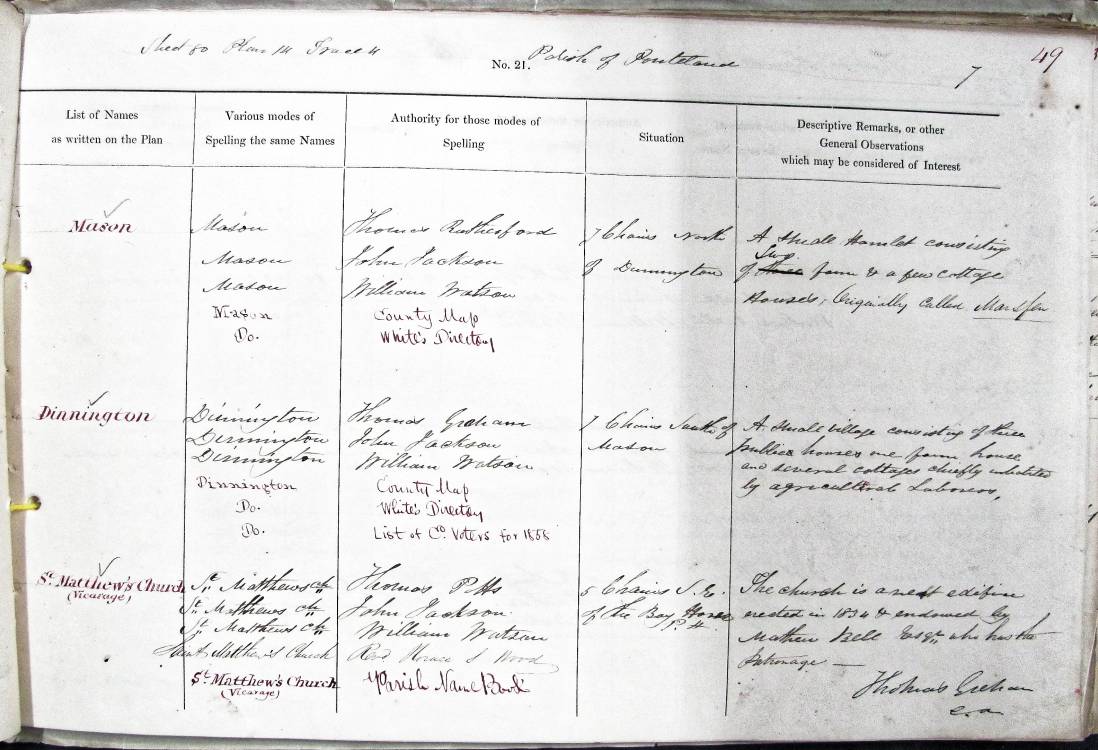 Shed 80 Plan 14 Trace 4
No. 21.
Parish of Ponteland
7
49
List of Names
as written on the Plan
Various modes of
Spelling the same Names
Authority for those modes of
Spelling
Situation
Descriptive Remarks, or other
General Observations
which may be considered of Interest
Mason
Mason
Mason
Mason
Mason
Do.
Thomas Rutherford
John Jackson
William Watson
County Map
White's Directory
7 Chains North
of Dinnington
A Small Hamlet consisting
of three farm & a few cottage
Houses, Originally called
Dinnington
Dinnington
Dinnington
Dinnington
Dinnington
Do.
Do.
Thomas Graham
John Jackson
William Watson
County Map
White's Directory
List of Co. Voters for 1858
7 Chains South of
Mason
A small village consisting of three
public houses one farm house
and several cottages chiefly inhabited
by agricultural Laborers,
St. Matthew's Church
(Vicarage)
St. Matthews Ch
St. Matthews Ch
St. Matthews Ch
Saint Matthew's Church
St. Matthew's Church
(Vicarage)
Thomas Potts
John Jackson
William Watson
Revd Horace S Wood
Parish Name Book
5 Chains S. E.
of the Bay Horse
P. H
The church is a neat edifice
erected in 1834 & endowed by
Mathew Bell Esqr. who has the
patronage —
Thomas Graham
c. a